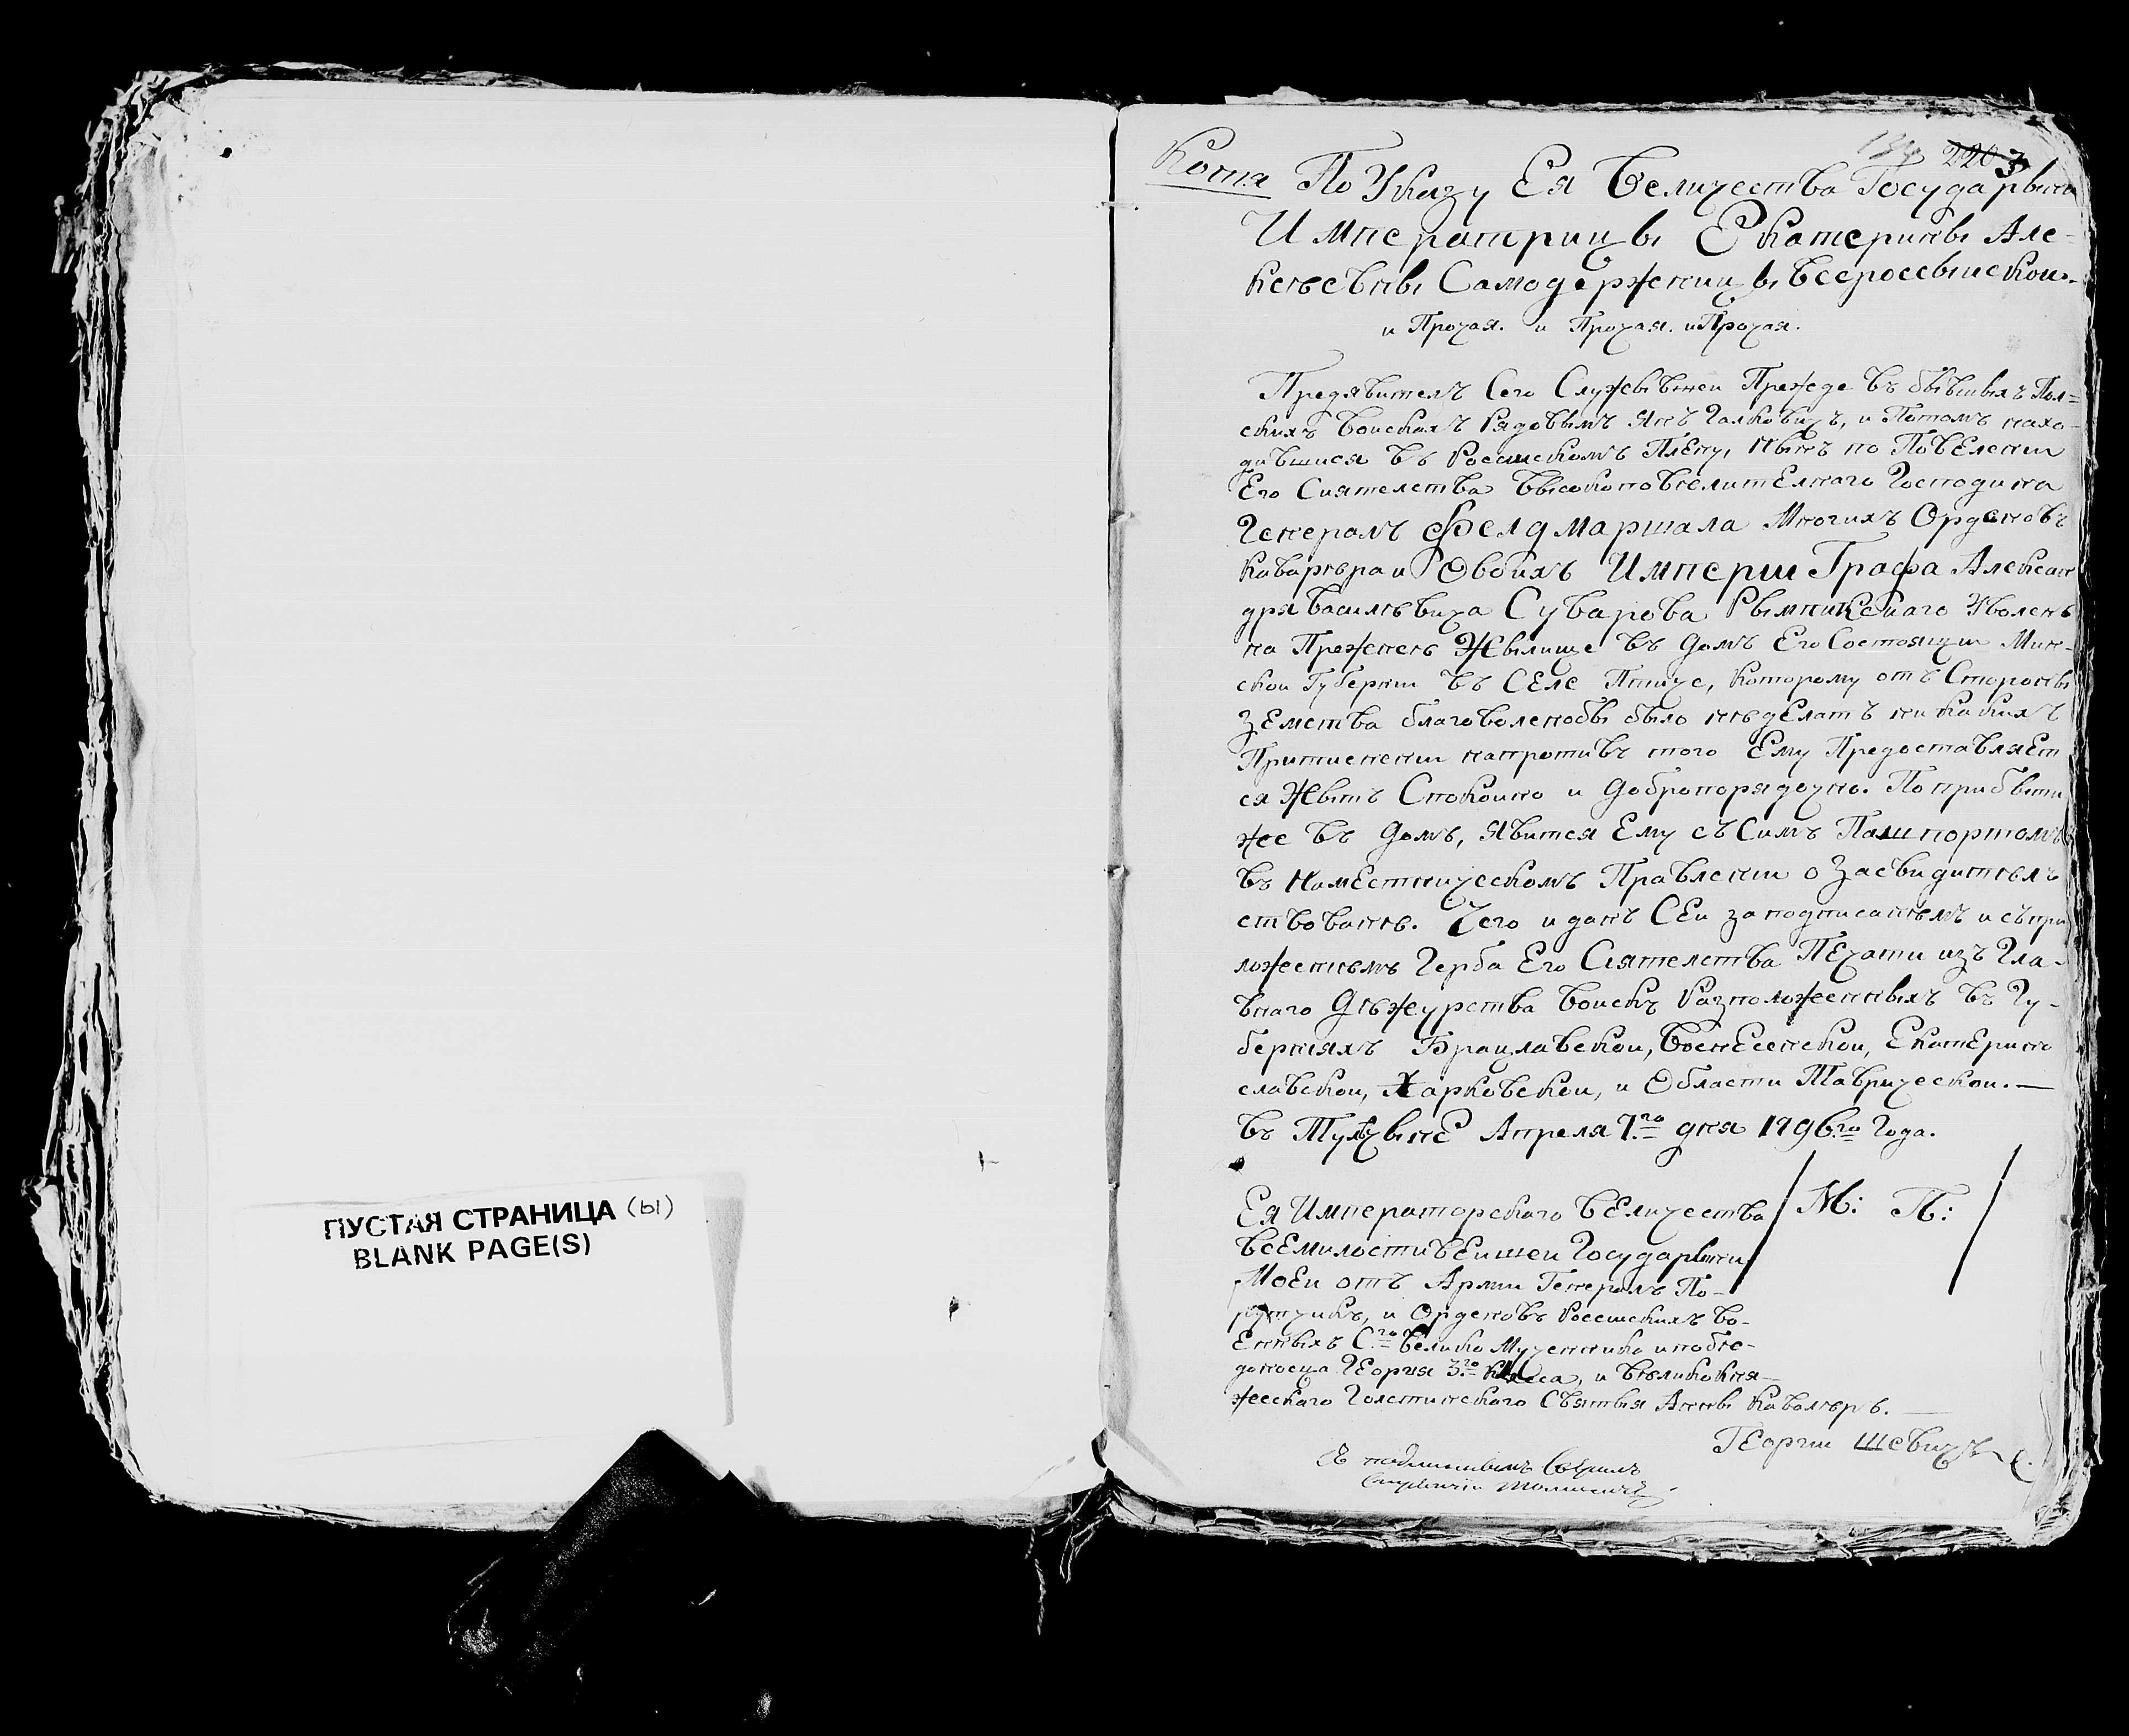 ПУСТАЯ СТРАНИЦА (ы)
BLANK PAGE(S)
Копия По Указу Ея Величества Государыни
Императрицы Екатерины Але-
ксеевны Самодержицы Всероссыискои
и Прочая. и Прочая. и Прочая.
Предявител Сего Служывшеи Прежде въ бывшыхъ Пол=
скихъ Воискахъ Рядовымъ Янъ Галковичъ, и Потомъ нахо-
дившися въ Россискомъ Плену, Нынъ по Повелении
Его Сиятелства Высокоповелителнаго Господина
Генералъ Фелдмаршала Многихъ Орденовъ
Кавалера и Обоихъ Империи Графа Алексан
дра Василевича Суварова Рымникскаго Уволенъ
на Прежнее Жылище въ домъ Его Состоящии Мин-
скои Губернии въ Селе Птиче, Которому отъ Стороны
Земства благоволенобы было не делатъ ни какихъ
Притиснении напротивъ того Ему Предоставляет
ся Жытъ Спокоино и добропорядочно. По прибыти
же въ домъ, явится Ему съ Симъ Пашпортомъ
въ Наместническомъ Правлении о Засвидителъ
ствование. Чего и данъ Сеи за подписаниемъ и съ при
ложениемъ Герба Его Сиятелства Печати изъ Гла-
внаго Дежурства Воискъ Разположенныхъ въ Гу-
берниахъ Брацлавскои, Воснесенскои, Екатерино
славскои, Харковскои, и Области Таврическои.—
въ Тулчыне Апреля 7го дня 1796го Года.
Ея Императорскаго Величества / М: П: /
Всемилостивеишеи Государыни
Моеи отъ Армии Генералъ По-
рутчикъ, и Орденовъ Россискихъ во-
енныхъ Сго Велико Мученника и побе-
доносца Георгия 3го Класса, и Великокня-
жескаго Голстинскаго Святыя Анны Кавалеръ.
Георгии Шевичъ